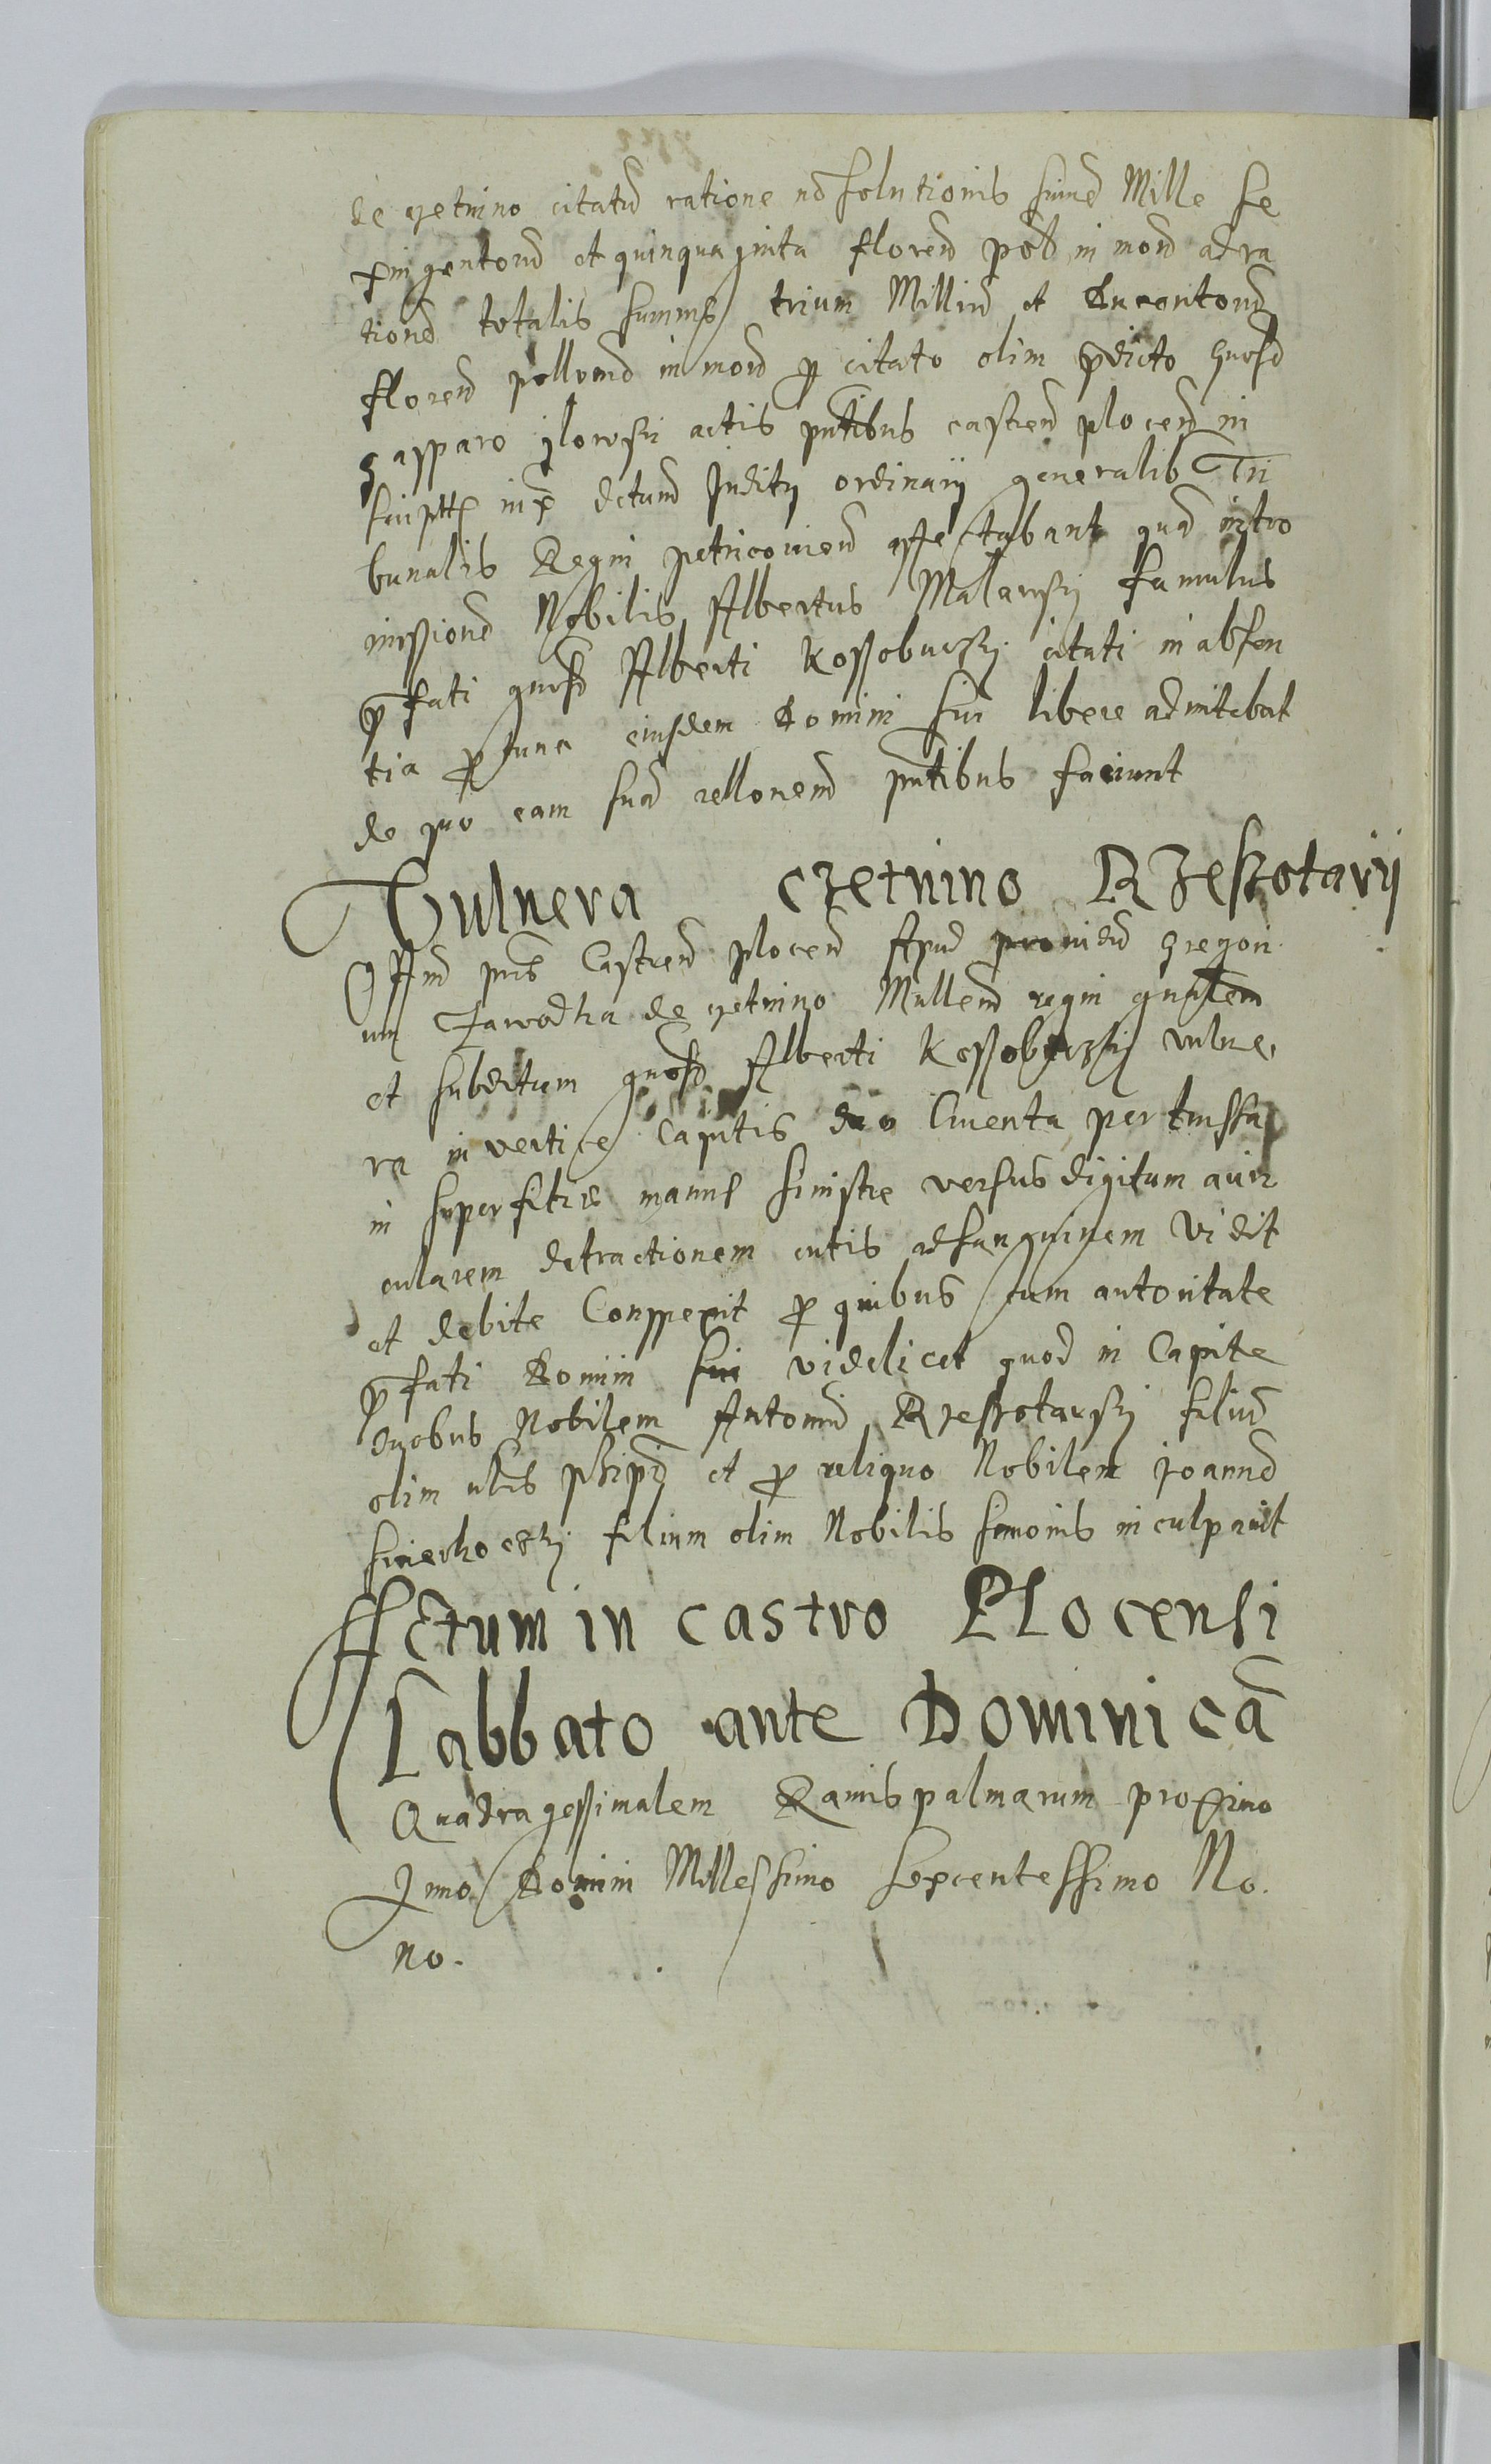 de czetnino citatū ratione nō solutionis sumē Mille se
xingentorū et quinquaginta florenū pol in monē ad ra
tionē totalis summę trium Milliū et Ducentorū
florenū pollonē in monē p citato olim pdicto gnoso
gasparo ilowsky actis pntibus castren plocen in
script inx dctum Juditij ordinarij generalis Tri
bunalis Regni petricovien affectabant quā intro
missionē Nobilis Albertus Malawsky famulus
pfati gnosi Alberti Kossobudzky citati in absen
tia p tunc eiusdem Domini sui libere admitebat
de quo eam suā rellonem pntibus faciunt
Vulnera Czetnino Rzeszotarij
Offm pns Castren plocen Apud providū gregori
um Zawodka de czetnino Mullem regni gnalem
et subditum gnosi Alberti Kossobudzky vulne
ra in vertice Capitis duo Cruenta pertussa
in superfitie manus sinistre versus digitum auri
cularem detractionem cutis ad sanguinem Vidit
et debite Conspexit p quibus cum autoritate
pfati Domini sui videlicet quod in Capite
duobus Nobilem Antoniū Rzeszotarsky filiū
olim nlis philippi et p reliquo Nobilem joannē
swierhocsky filium olim Nobilis simonis inculpavit
Actum in castro Plocensi
Sabbato ante Dominicā
Quadragessimalem Ramispalmarum proximo
Anno Domini Millessimo Sexcentessimo No.
no.